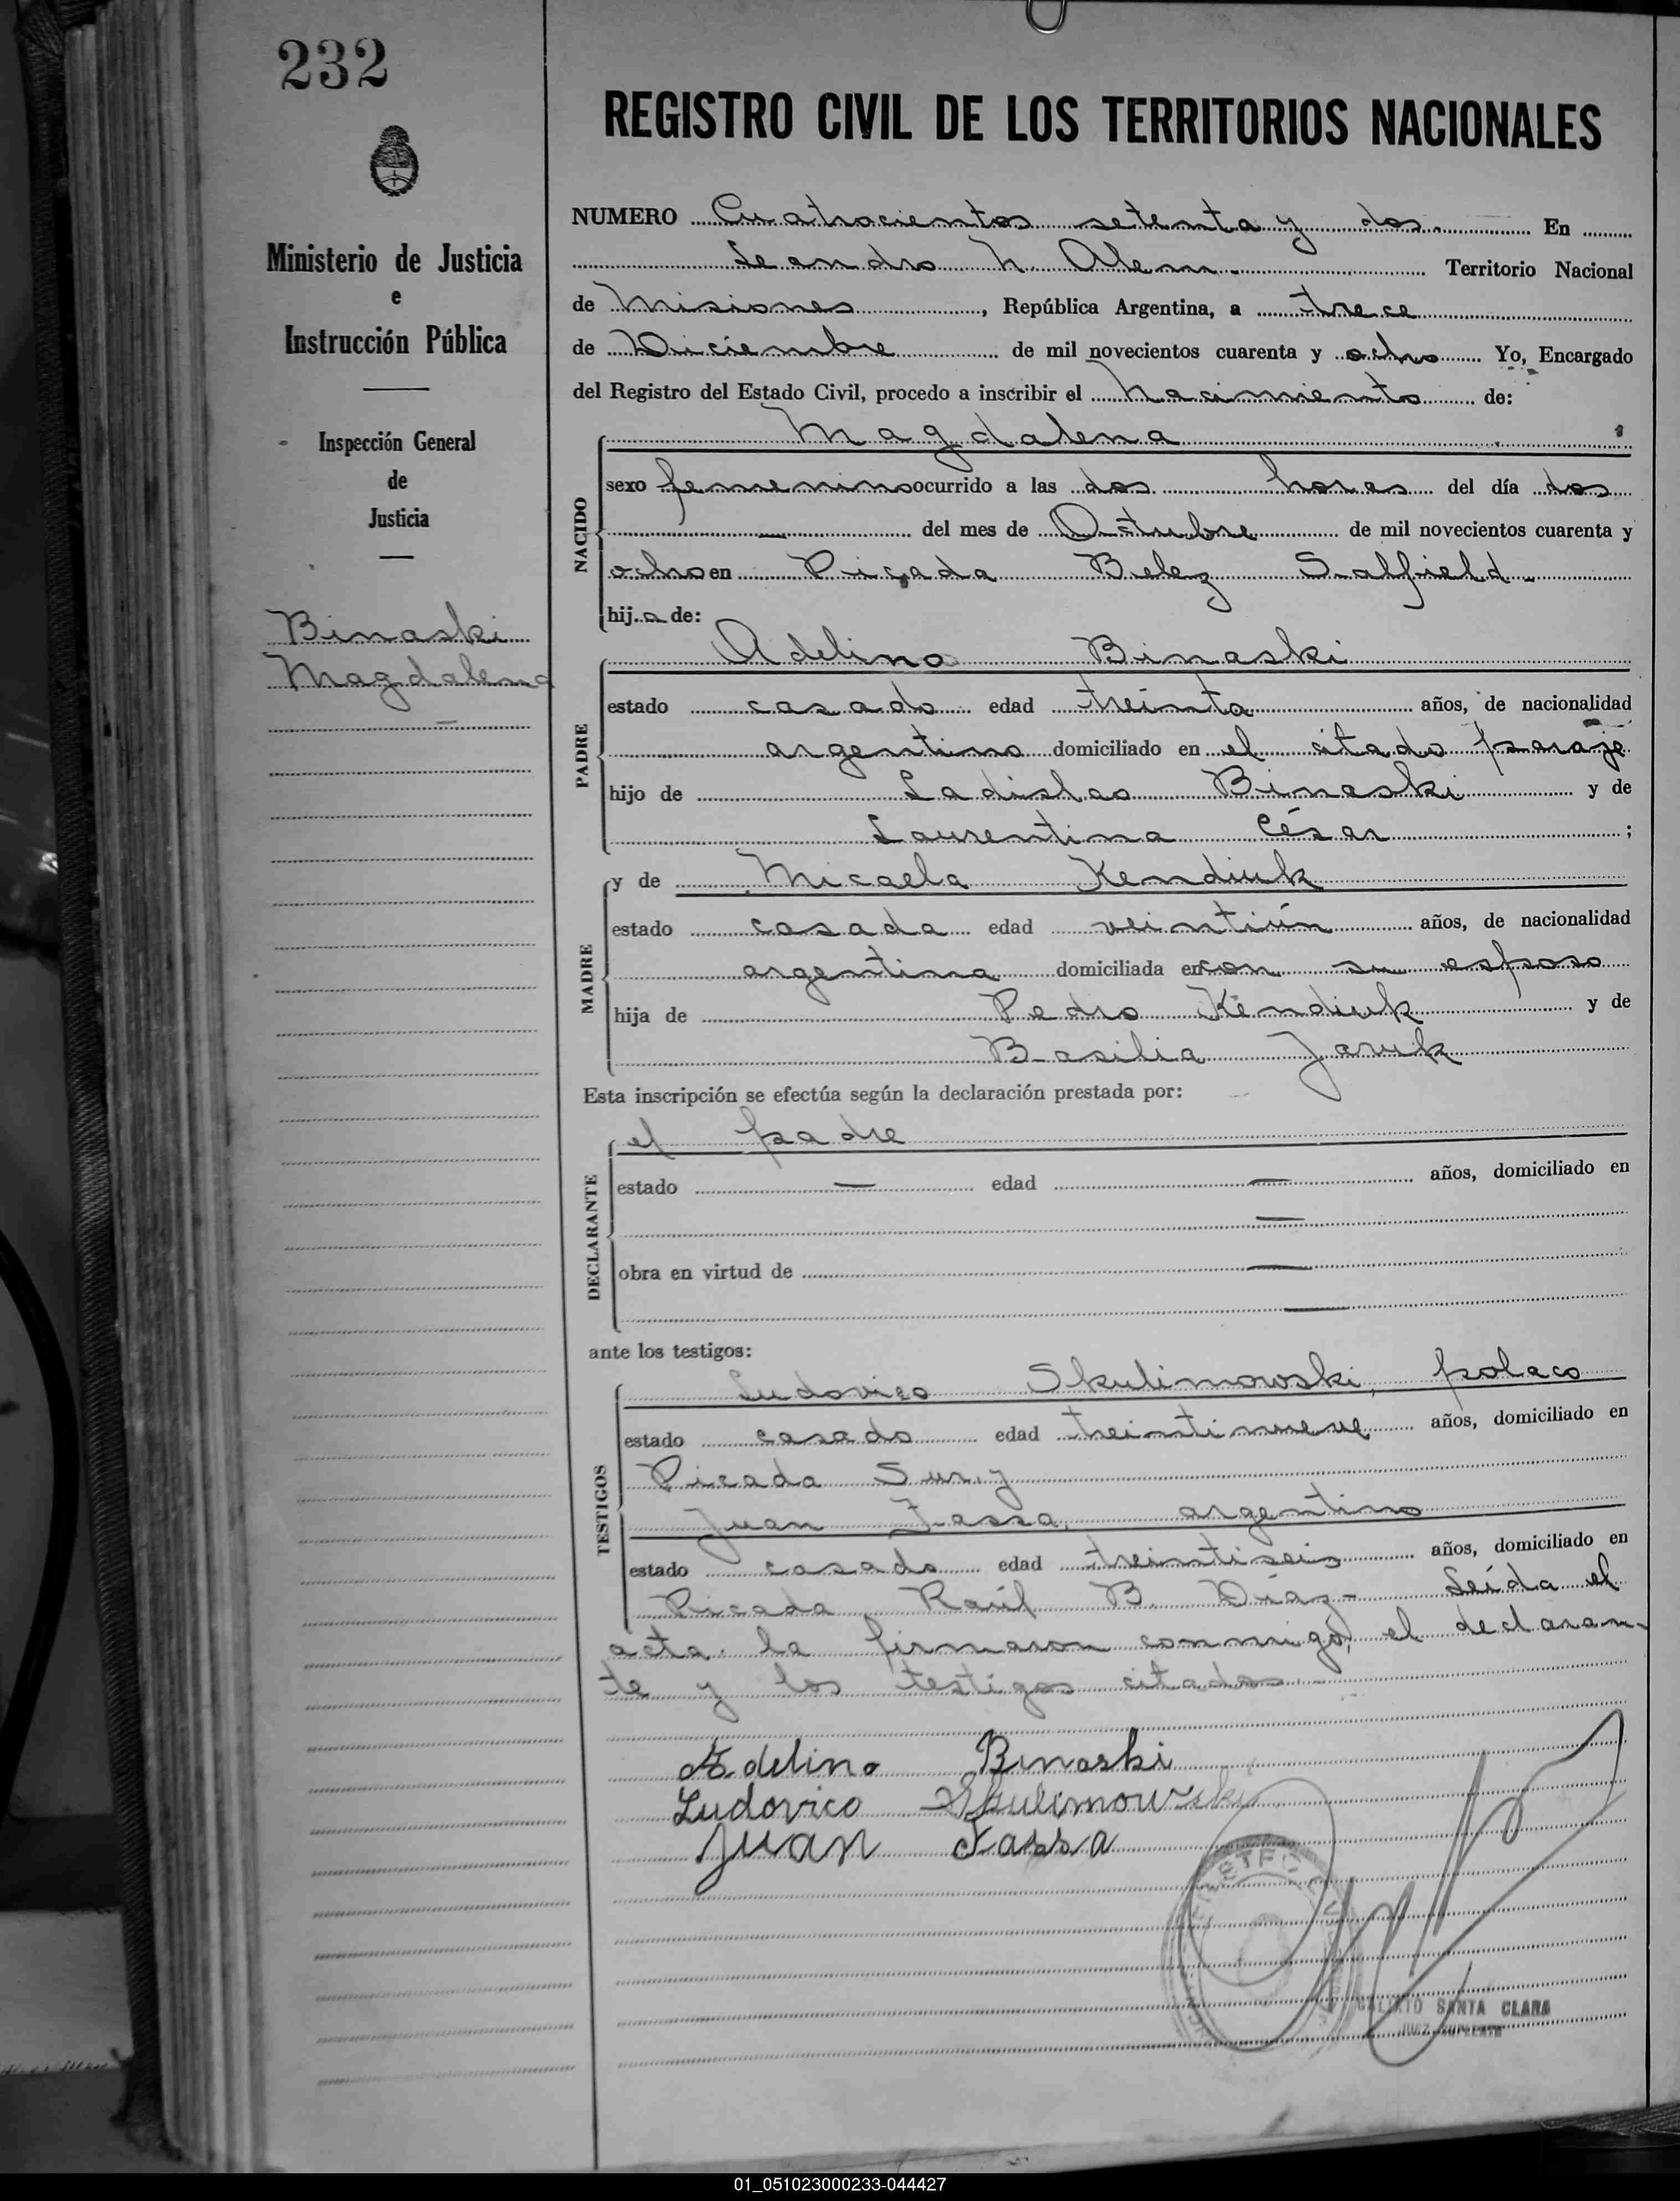 232
Ministerio de Justicia
e
Instrucción Pública
Inspección General
de
Justicia
Binaski
Magdalena
REGISTRO CIVIL DE LOS TERRITORIOS NACIONALES
NUMERO Cuatrocientos setenta y dos. En
Leandro N. Alem. Territorio Nacional
de Misiones, República Argentina, a trece
de Diciembre de mil novecientos cuarenta y ocho Yo, Encargado
del Registro del Estado Civil, procedo a inscribir el nacimiento de:
Magdalena
NACIDO
sexo femenino ocurrido a las dos horas del día dos
— del mes de Octubre de mil novecientos cuarenta y
ocho en Picada Belez Salfield.
hija de:
Adelino Binaski
PADRE
estado casado edad treinta años, de nacionalidad
argentino domiciliado en el citado paraje
hijo de Ladislao Binaski y de
Laurentina César ;
y de Micaela Kendiuk
MADRE
estado casada edad veintiún años, de nacionalidad
argentina domiciliada en con su esposo
hija de Pedro Kendiuk y de
Basilia Jaruk
Esta inscripción se efectúa según la declaración prestada por:
el padre
DECLARANTE
estado — edad — años, domiciliado en
—
obra en virtud de —
—
ante los testigos:
Ludovico Skulimowski, polaco
TESTIGOS
estado casado edad treintinueve años, domiciliado en
Picada Sur, y
Juan Fassa, argentino
estado casado edad treintiseis años, domiciliado en
Picada Raúl B. Díaz- Leída el
acta. la firmaron conmigo, el declaran-
te y los testigos citados
Adelino Binaski
Ludovico Skulimowski
Juan Fassa
CALIXTO SANTA CLARA
JUEZ SUPLENTE
01_051023000233-044427